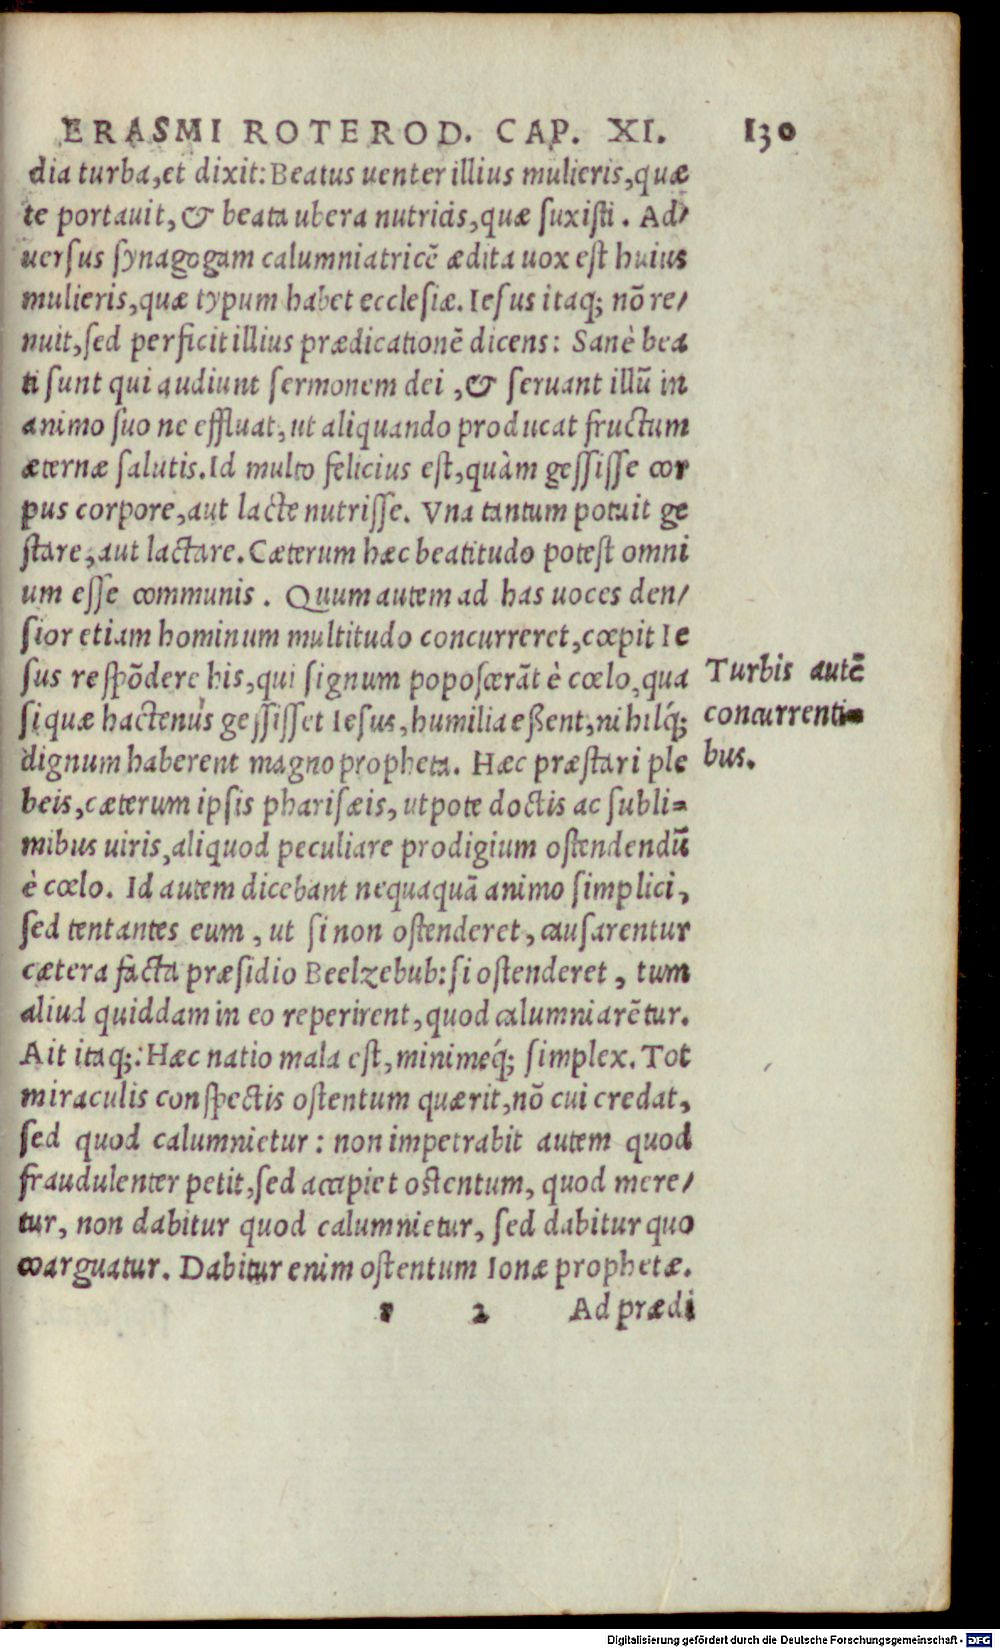 ERASMI ROTEROD. CAP. XI. 130
dia turba, et dixit: Beatus uenter illius mulieris, quæ
te portauit, & beata ubera nutricis, quæ ſuxiſti. Ad/
uerſus ſynagogam calumniatricē ædita uox eſt huius
mulieris, quæ typum habet eccleſiæ. Ieſus itaq; nō re/
nuit, ſed perficit illius prædicationē dicens: Sanè bea
ti ſunt qui audiunt ſermonem dei, & ſeruant illū in
animo ſuo ne effluat, ut aliquando producat fructum
æternæ ſalutis. Id multo felicius eſt, quàm geſſiſſe cor
pus corpore, aut lacte nutriſſe. Vna tantum potuit ge
ſtare, aut lactare. Cæterum hæc beatitudo poteſt omni
um eſſe communis. Quum autem ad has uoces den/
ſior etiam hominum multitudo concurreret, cœpit Ie
ſus reſpōdere his, qui ſignum popoſcerāt è cœlo, qua
ſi quæ hactenus geſſiſſet Ieſus, humilia eßent, nihilq́;
dignum haberent magno propheta. Hæc præſtari ple
beis, cæterum ipſis phariſæis, utpote doctis ac ſubli=
mibus uiris, aliquod peculiare prodigium oſtendendū
è cœlo. Id autem dicebant nequaquā animo ſimplici,
ſed tentantes eum, ut ſi non oſtenderet, cauſarentur
cætera facta præſidio Beelzebub: ſi oſtenderet, tum
aliud quiddam in eo reperirent, quod calumniarētur.
Ait itaq;: Hæc natio mala eſt, minimeq́; ſimplex. Tot
miraculis conſpectis oſtentum quærit, nō cui credat,
ſed quod calumnietur: non impetrabit autem quod
fraudulenter petit, ſed accipiet oſtentum, quod mere/
tur, non dabitur quod calumnietur, ſed dabitur quo
coarguatur. Dabitur enim oſtentum Ionæ prophetæ.
2 Ad prædi
Turbis autē
concurrenti=
bus.
Digitalisierung gefördert durch die Deutsche Forschungsgemeinschaft - DFG